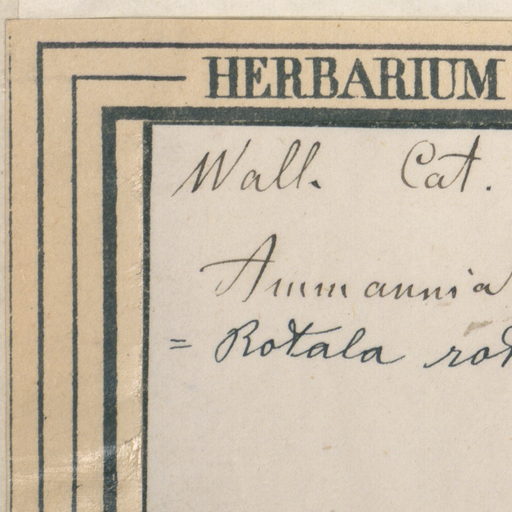 HERBARIUM
Wall. Cat.
Ammannia
= Rotala rot